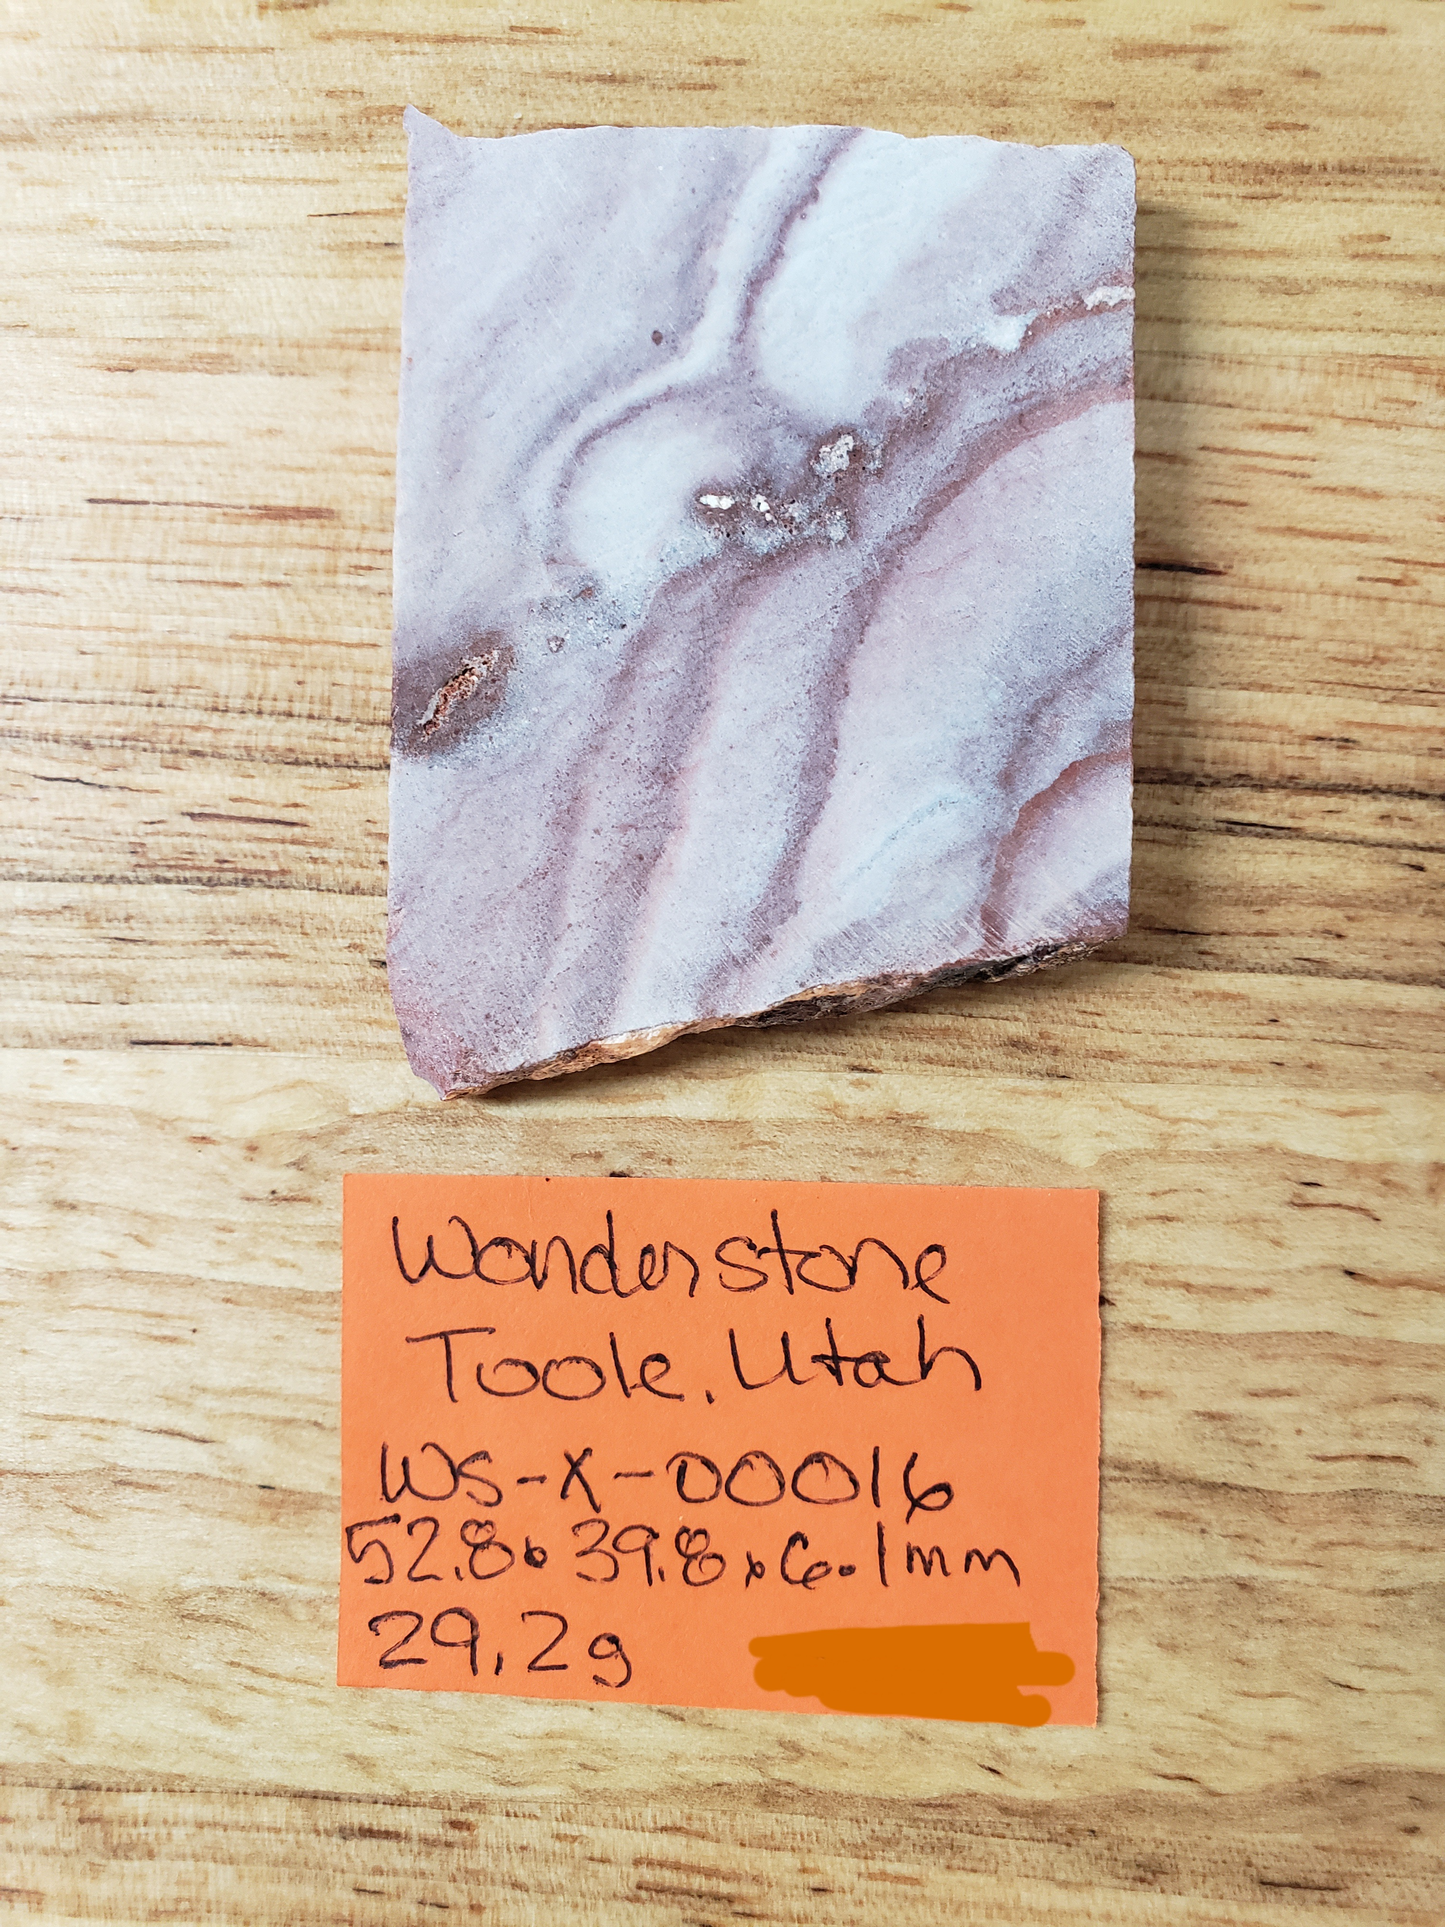 Wonderstone
Toole, Utah
WS-X-00016
52.8x39.8x6.1mm
29.2g